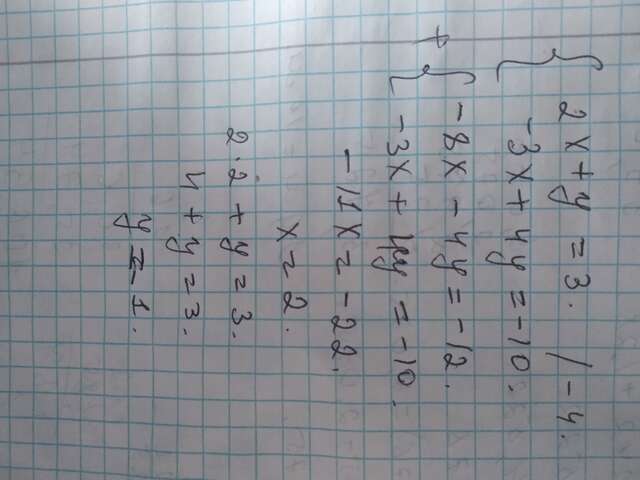 { 2x + y = 3. / -4.
-3x + 4y = -10.
+ { -8x - 4y = -12.
-3x + 4y = -10.
-11x = -22.
x = 2.
2·2 + y = 3.
4 + y = 3.
y = -1.